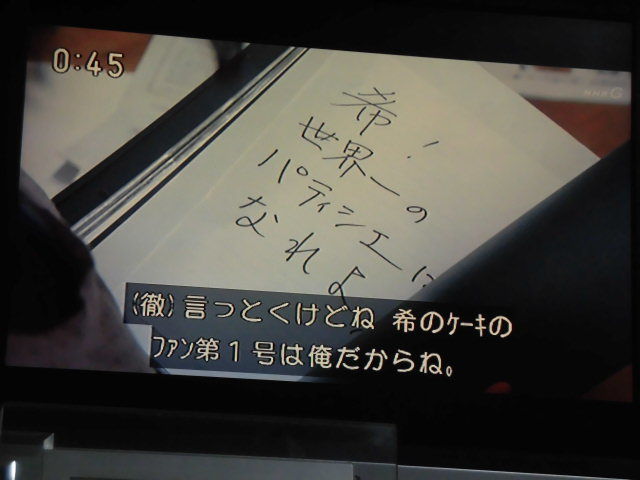 0:45
NHK G
希!
世界一の
パティシエに
なれよ
(徹)言っとくけどね 希のケーキの
ファン第1号は俺だからね。